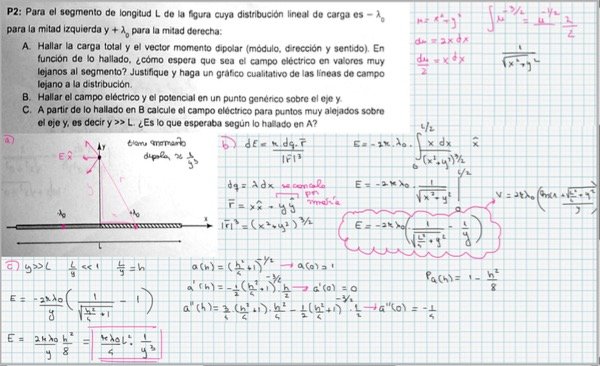 P2: Para el segmento de longitud L de la figura cuya distribución lineal de carga es − λ₀
para la mitad izquierda y + λ₀ para la mitad derecha:
A. Hallar la carga total y el vector momento dipolar (módulo, dirección y sentido). En
función de lo hallado en él, ¿cómo espera que sea el campo eléctrico en valores muy
lejanos al segmento? Justifique y haga un gráfico cualitativo de las líneas de campo
lejano a la distribución.
B. Hallar el campo eléctrico y el potencial en un punto genérico sobre el eje y.
C. A partir de lo hallado en B calcule el campo eléctrico para puntos muy alejados sobre
el eje y, es decir y >> L. ¿Es lo que esperaba según lo hallado en A?
u = x² + y²
du = 2x dx
du/2 = x dx
∫ u^(-3/2) = u^(-1/2) · 2/2
1/√(x² + y²)
a)
E x̂
y
r
tiene momento
dipolar ≈ 1/y³
-λ₀
+λ₀
x
L
b) dE = k dq r̄ / |r̄|³
dq = λ dx
se cancela
por
simetría
r̄ = x x̂ + y ŷ
|r̄|³ = (x² + y²)^(3/2)
E = -2k λ₀ · ∫₀^(L/2) x dx / (x² + y²)^(3/2) x̂
E = -2k λ₀ · 1/√(x² + y²) |₀^(L/2)
E = -2kλ₀ (1/√(L²/4 + y²) - 1/y)
c) y >> L L/y << 1 L/y = h
E = -2kλ₀/y (1/√(h²/4 + 1) - 1)
E = 2kλ₀/y h²/8 = kλ₀L²/4 · 1/y³
a(h) = (h²/4 + 1)^(-1/2) → a(0) = 1
a'(h) = -1/2 (h²/4 + 1)^(-3/2) · h/2 → a'(0) = 0
a''(0) = -1/4
Pa(h) = 1 - h²/8